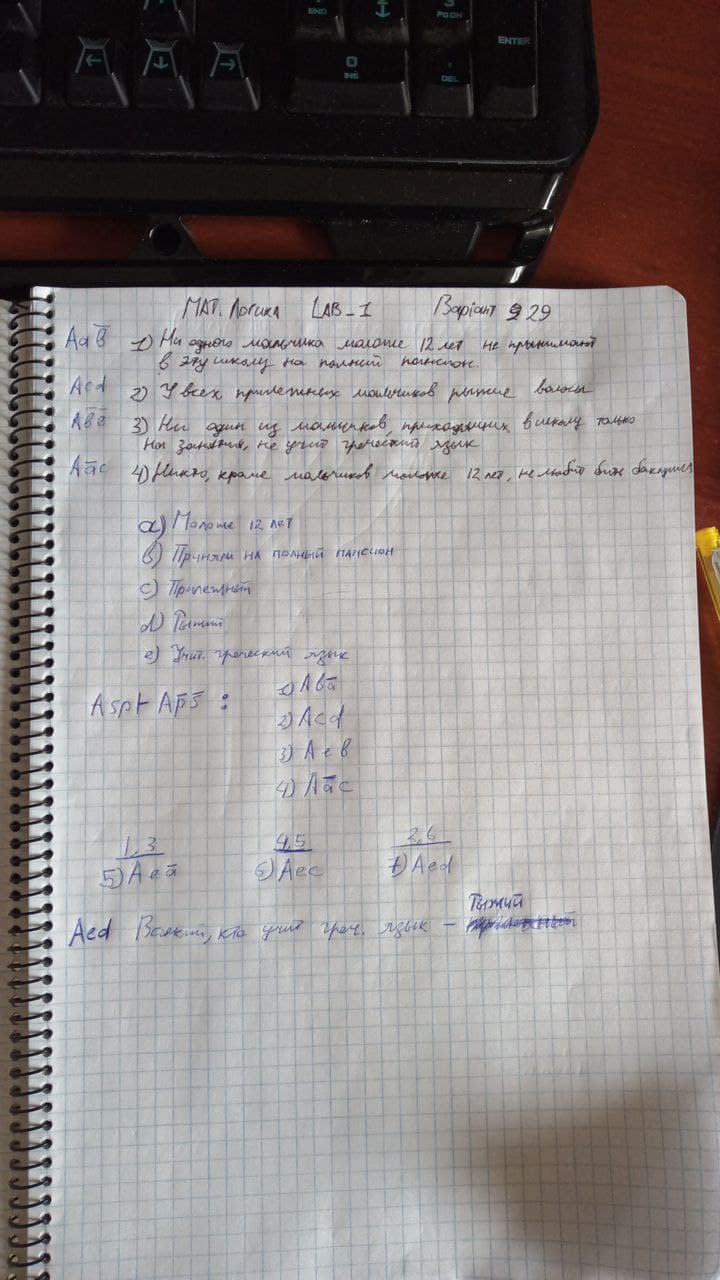 END
PG DN
ENTER
0
INS
DEL
МАТ. Логика LAB_1 Варіант 29
Aa b̅ 1) Ни одного мальчика моложе 12 лет не принимают
в эту школу на полный пансион.
Acd 2) У всех прилежных мальчиков рыжие волосы
A b̅ e̅ 3) Ни один из мальчиков, приходящих в школу только
на занятия, не учит греческий язык
A a̅ c 4) Никто, кроме мальчиков моложе 12 лет, не любит бить
a) Моложе 12 лет
b) Приняли на полный пансион
c) Прилежный
d) Рыжий
e) Учит. греческий язык
Asp ⊢ A p̅ s̅ : 1) A b a̅
2) Acd
3) A e b
4) A a̅ c
1,3 4,5 2,6
5) A e a̅ 6) Aec 7) Aed
Рыжий
Aed Всякий, кто учит греч. язык –